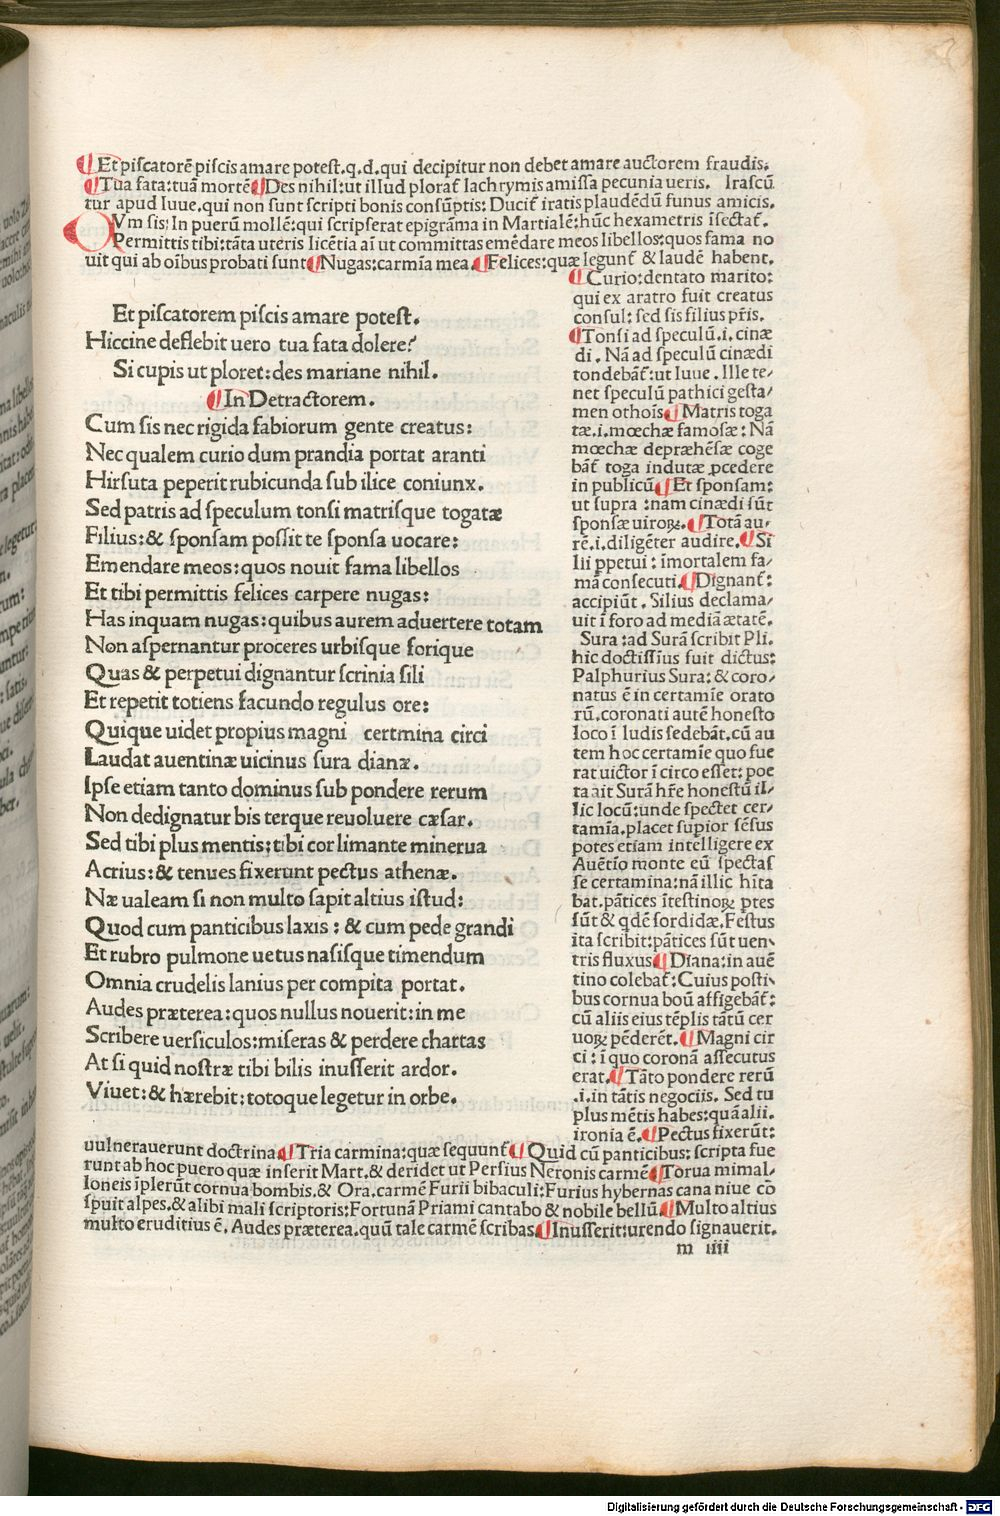 ¶Et piſcatorē piſcis amare poteſt.q.d.qui decipitur non debet amare auctorem fraudis.
¶Tua fata:tuā mortē¶Des nihil:ut illud ploraſ lachrymis amiſſa pecunia ueris. Iraſcū
tur apud Iuue.qui non ſunt ſcripti bonis conſūptis: Ducit iratis plaudēdū funus amicis.
CVm sis: In puerū mollē:qui ſcripſerat epigrāma in Martialē:hūc hexametris īſectat̄.
Permittis tibi:tāta uteris licētia aī ut committas emēdare meos libellos:quos fama no
uit qui ab oībus probati ſunt¶Nugas:carmīa mea.¶Felices:quæ legunt̄ & laudē habent.
Et piſcatorem piſcis amare poteſt.
Hiccine deflebit uero tua fata dolere?
Si cupis ut ploret:des mariane nihil.
¶In Detractorem.
Cum ſis nec rigida fabiorum gente creatus:
Nec qualem curio dum prandia portat aranti
Hirſuta peperit rubicunda ſub ilice coniunx.
Sed patris ad ſpeculum tonſi matriſque togatæ
Filius:& ſponſam poſſit te ſponſa uocare:
Emendare meos:quos nouit fama libellos
Et tibi permittis felices carpere nugas:
Has inquam nugas:quibus aurem aduertere totam
Non aſpernantur proceres urbiſque forique
Quas & perpetui dignantur ſcrinia ſili
Et repetit totiens facundo regulus ore:
Quique uidet propius magni certmina circi
Laudat auentinæ uicinus ſura dianæ.
Ipſe etiam tanto dominus ſub pondere rerum
Non dedignatur bis terque reuoluere cæſar.
Sed tibi plus mentis:tibi cor limante minerua
Acrius:& tenues fixerunt pectus athenæ.
Næ ualeam ſi non multo ſapit altius iſtud:
Quod cum panticibus laxis: & cum pede grandi
Et rubro pulmone uetus naſiſque timendum
Omnia crudelis lanius per compita portat.
Audes præterea:quos nullus nouerit:in me
Scribere uerſiculos:miſeras & perdere chartas
At ſi quid noſtræ tibi bilis inuſſerit ardor.
Viuet:& hærebit:totoque legetur in orbe.
¶Curio:dentato marito:
qui ex aratro fuit creatus
conſul: ſed ſis filius pr̄is.
¶Tonſi ad ſpeculū.i. cinæ
di. Nā ad ſpeculū cinædi
tondebāt̄:ut Iuue. Ille te⸗
net ſpeculū pathici geſta⸗
men othoīs¶Matris toga
tæ.i.mœchæ famoſæ: Nā
mœchæ depræhēſæ coge
bāt̄ toga indutæ ꝓcedere
in publicū¶Et ſponſam:
ut ſupra :nam cinædi ſūt
ſponſæ uiroꝝ.¶Totā au⸗
rē.i.diligēter audire.¶Si
lii ꝑpetui: īmortalem fa⸗
mā conſecuti.¶Dignant̄:
accipiūt. Silius declama⸗
uit ī foro ad mediā ætatē.
Sura:ad Surā ſcribit Pli.
hic doctiſſīus fuit dictus:
Palphurius Sura:& coro⸗
natus ē in certamīe orato
rū.coronati autē honeſto
loco ī ludis ſedebāt.cū au
tem hoc certamīe quo fue
rat uictor ī circo eſſet: poe
ta ait Surā hr̄e honeſtū il⸗
lic locū:unde ſpectet cer⸗
tamīa.placet ſupior ſēſus
potes etiam intelligere ex
Auētīo monte eū ſpectaſ
ſe certamina:nā illic hīta
bat.pātices īteſtinoꝝ ptes
ſūt & qdē ſordidæ.Feſtus
ita ſcribit:pātices ſūt uen⸗
tris fluxus¶Diana:in auē
tino colebat̄:Cuius poſti⸗
bus cornua boū affigebāt̄:
cū aliis eius tēplis tātū cer
uoꝝ pēderēt.¶Magni cir
ci: ī quo coronā aſſecutus
erat.¶Tāto pondere rerū
.i.in tātis negociis. Sed tu
plus mētis habes:quā alii.
ironia ē.¶Pectus fixerūt:
uulnerauerunt doctrina.¶Tria carmina:quæ ſequunt̄¶Quid cū panticibus: ſcripta fue
runt ab hoc puero quæ inſerit Mart.& deridet ut Perſius Neronis carmē¶Torua mimal⸗
loneis īplerūt cornua bombis.& Ora.carmē Furii bibaculi:Furius hybernas cana niue cō
ſpuit alpes.& alibi mali ſcriptoris:Fortunā Priami cantabo & nobile bellū.¶Multo altius
multo eruditius ē. Audes præterea.quū tale carmē ſcribas.¶Inuſſerit:urendo ſignauerit.
m iiii
Digitalisierung gefördert durch die Deutsche Forschungsgemeinschaft - DFG